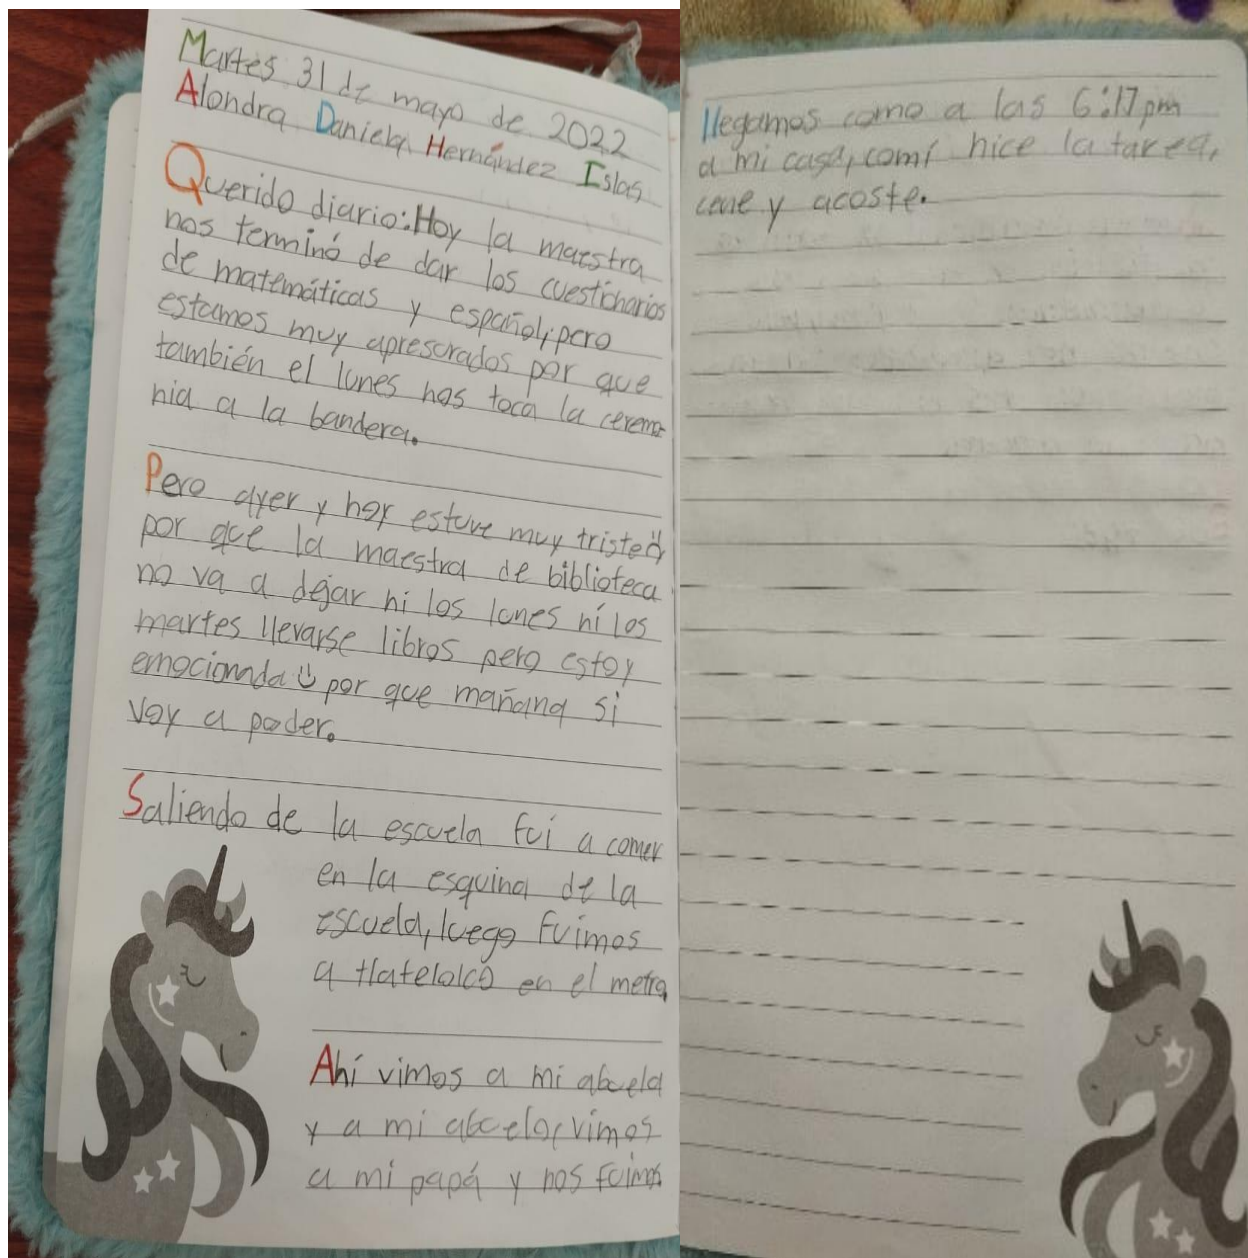 Martes 31 de mayo de 2022
Alondra Daniela Hernández Islas
Querido diario: Hoy la maestra
nos terminó de dar los cuestionarios
de matemáticas y español, pero
estamos muy apresurados por que
también el lunes nos toca la ceremo-
nia a la bandera.
Pero ayer y hoy estuve muy triste
por que la maestra de biblioteca
no va a dejar ni los lunes ní los
martes llevarse libros pero estoy
emocionada por que mañana si
voy a poder.
Saliendo de la escuela fui a comer
en la esquina de la
escuela, luego fuimos
a tlatelolco en el metro,
Ahí vimos a mi abuela
y a mi abuelo, vimos
a mi papá y nos fuimos
llegamos como a las 6:17 pm
a mi casa, comí hice la tarea,
cene y acoste.